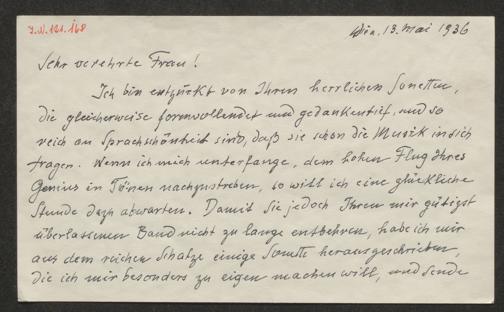 I.N. 121.168
Wien, 13. Mai 1936
Sehr verehrte Frau!
Ich bin entzückt von Ihren herrlichen Sonetten,
die gleicherweise formvollendet und gedankentief, und so
reich an Sprachschönheit sind, daß sie schon die Musik in sich
tragen. Wenn ich mich unterfange, dem hohen Flug Ihres
Genius in Tönen nachzustreben, so will ich eine glückliche
Stunde dazu abwarten. Damit Sie jedoch Ihren mir gütigst
überlassenen Band nicht zu lange entbehren, habe ich mir
aus dem reichen Schatze einige Sonette herausgeschrieben,
die ich mir besonders zu eigen machen will, und sende